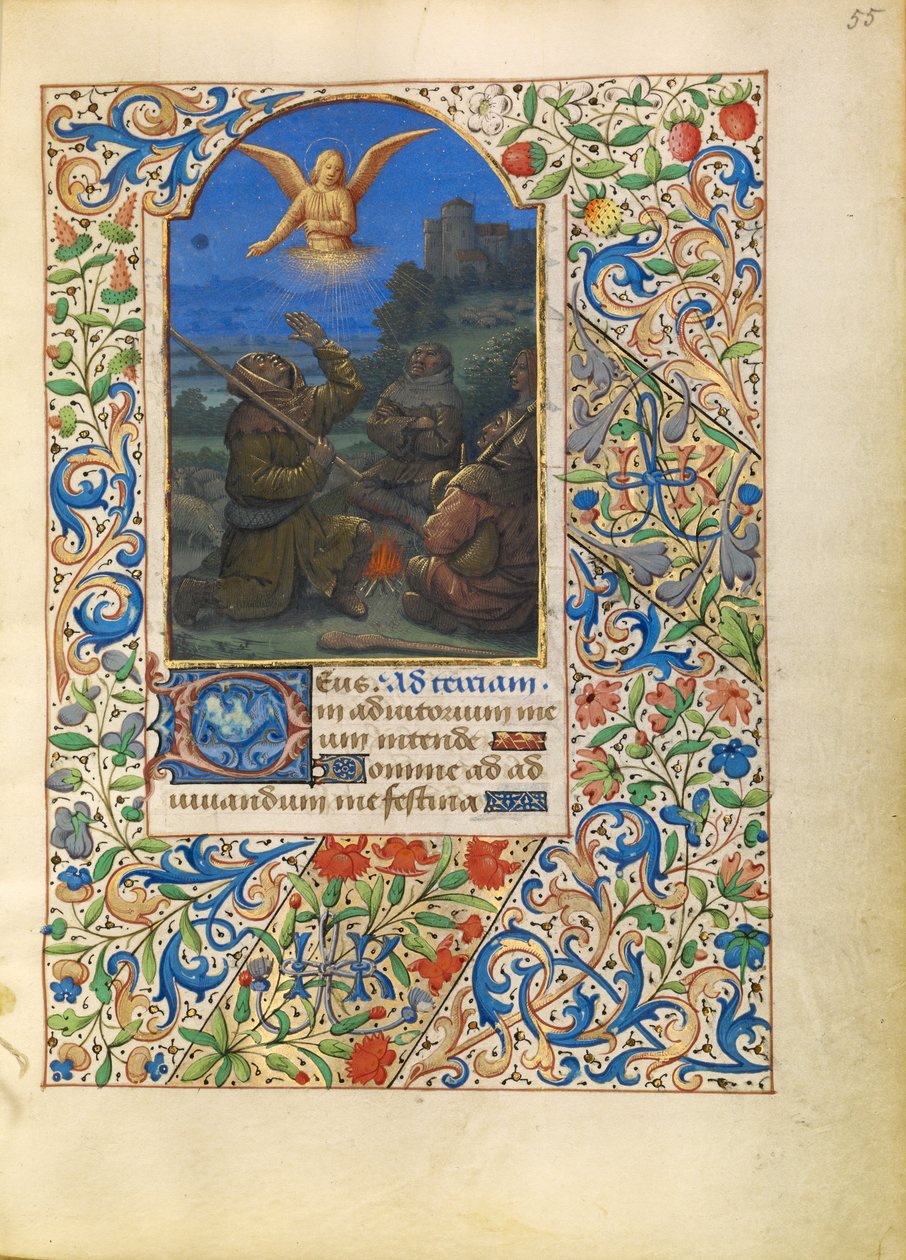 55
Deus. Ad terciam.
in adiutorium me
um intende
Domine ad ad
iuuandum me festina